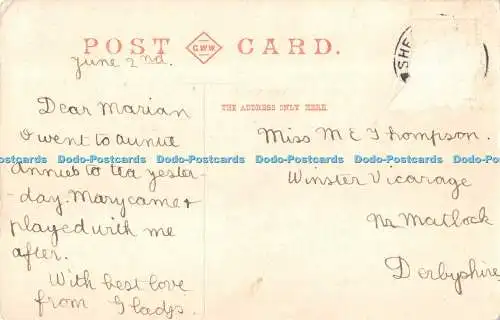 POST CARD.
G.W.W.
SHE
June 2nd.
THE ADDRESS ONLY HERE.
Dear Marian
I went to aunue
Annies to tea yester-
day. Mary came +
played with me
after.
With best love
from Gladys.
Miss M E Thompson.
Winster Vicarage
Nr Matlock
Derbyshire
Dodo-Postcards Dodo-Postcards Dodo-Postcards Dodo-Postcards Dodo-Postcards Dodo-Postcards